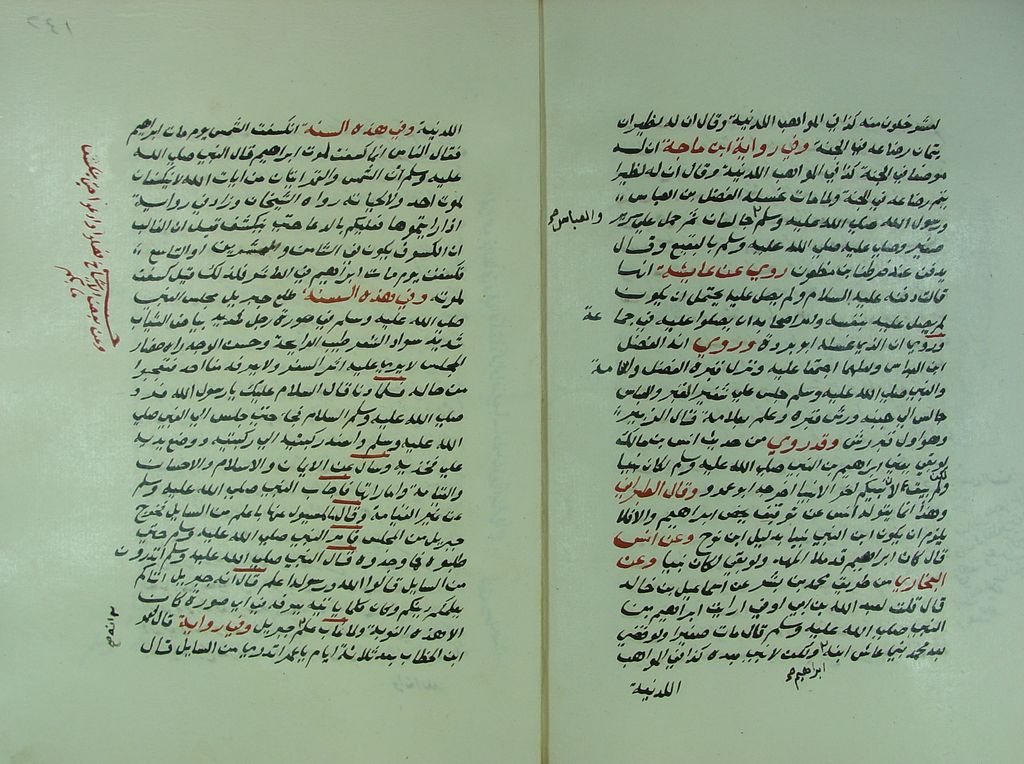 لعشر خلون منه كذا في المواهب اللدنية وقال ان له لظئران
يتمان رضاعه في الجنة وفي رواية ابن ماجة ان له
موضعا في الجنة كذا في المواهب اللدنية وقال ان له لظئرا
يتم رضاعه في الجنة ولما مات غسله الفضل بن العباس
ورسول الله صلى الله عليه وسلم جالسان ثم حمل على سرير
والعباس صح
صغير وصلى عليه صلى الله عليه وسلم بالبقيع وقال
يدفن عند فرطنا بن مظعون روي عن عايشة انها
قالت دفنه عليه السلام ولم يصل عليه يحتمل ان يكون
لم يصل عليه بنفسه وامر اصحابه ان يصلوا عليه في جما عة
وروي ان الذي غسله ابو بردة وروي انه الفضل
ابن العباس ولعلهما اجتمعا عليه ونزل قبره الفضل واسامة
والنبي صلى الله عليه وسلم جلس على شفير القبر والعباس
جالس الى جنبه ورش قبره وعلم بعلامة قال الزبير
وهو اول قبر رش وقد روي من حديث انس بن مالك
لو بقي يعني ابراهيم بن النبي صلى الله عليه وسلم لكان نبيا
ولم يبق لان نبيكم اخر الانبيا اخرجه ابو عمرو وقال الطبراني
وهذا انما يقوله انس عن توقيف يخص ابراهيم والا فلا
يلزم ان يكون ابن النبي نبيا بدليل ابن نوح وعن انس
قال كان ابراهيم قد ملا المهد ولو بقي لكان نبيا وعن
البخاري من طريق محمد بن بشر عن اسماعيل بن خالد
قال قلت لعبد الله بن ابي اوفى ارايت ابراهيم بن
النبي صلى الله عليه وسلم قال مات صغيرا ولو قضي
بعد محمد نبي عاش ابنه ولكن لا نبي بعده كذا في المواهب
ابراهيم صح
اللدنية
اللدنية وفي هذه السنة انكسفت الشمس يوم مات ابراهيم
فقال الناس انما كسفت لموت ابراهيم قال النبي صلى الله
عليه وسلم ان الشمس والقمر ايتان من ايات الله لا ينكسفان
لموت احد ولا لحياته رواه الشيخان وزاد في رواية
اذا رايتموها فعليكم بالدعا حتى ينكشف قيل ان الغالب
ان الكسوف يكون في الثامن والعشرين او التاسع
فكسفت يوم مات ابراهيم في العاشر فلذلك قيل كسفت
لموته وفي هذه السنة طلع جبريل مجلس النبي
صلى الله عليه وسلم في صورة رجل شديد بياض الثياب
شديد سواد الشعر طيب الرايحة وحسن الوجه راه حضار
المجلس لا يرى عليه اثر السفر ولا يعرفه منا احد فتعجبوا
من حاله فلما دنا قال السلام عليك يا رسول الله فرد
صلى الله عليه وسلم السلام فجا حتى جلس الى النبي صلى
الله عليه وسلم واسند ركبتيه الى ركبتيه ووضع يديه
على فخذيه وسال عن الايمان والاسلام والاحسان
والقيامة واماراتها فاجاب النبي صلى الله عليه وسلم
عن غير القيامة وقال ما المسيول عنها باعلم من السايل فخرج
جبريل من المجلس فامر النبي صلى الله عليه وسلم حتى
طلبوه فما وجدوه قال النبي صلى الله عليه وسلم اتدرون
من السايل قالوا الله ورسوله اعلم قال انه جبريل اتاكم
يعلمكم دينكم وكان كلما ياتيه يعرفه في اي صورة كان
الا هذه النوبة ولما غاب علم جبريل وفي رواية قال لعمر
ابن الخطاب بعد ثلاثة ايام يا عمر اتدري من السايل قال